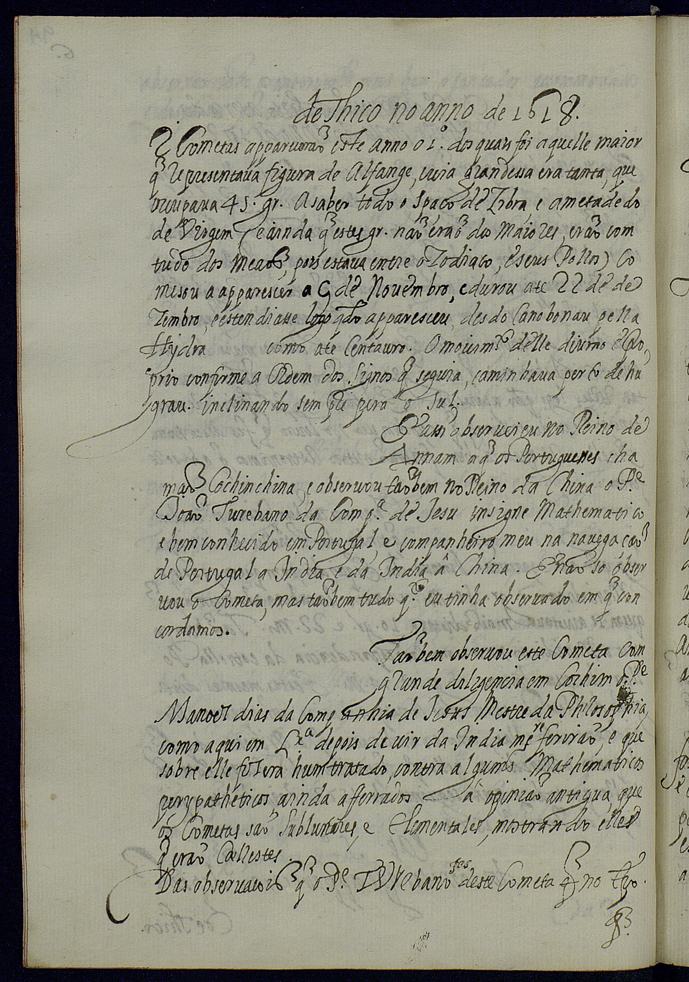 de Thico no anno de 1618.
2 Cometas apparverão este anno o 1º. dos quais foi aquelle maior
q̃ representava figura de Alfange, cuia grandessa era tanta, que
occupava 45. gr. A saber todo o spaço de Libra e ametade do
de Virgem (e ainda q̃ estes gr. não erão dos maiores, erão com
tudo dos meaõs, pois estava entre o Zodiaco, e seus Pollos) Co
mesou a apparescer a 9 de Novembro, e durou ate 22 de de
Zembro, e estendiasse logo qdo appareceu, desdo Canobonau pella
Hydra como até Centauro. O mouimto. delle diurno e pro
prio conforme a Ordem dos Signos q̃ seguia, caminhava perto de hũ
grau. inclinando sempre pera o Sul.
observei eu no Reino de
Annam a q̃ os Portugueses cha
maõ Cochinchina, e observou tambem no Reino da China o Pe
João Vrebano da Compª. de Jesu insigne Mathematico
e bem conhecido em Portugal, e companheiro meu na navegação
de Portugal a India e da India a China. E não só obser
vou o Cometa, mas tãobem tudo q̃ eu tinha observado em q̃ con
cordamos.
Tãobem observou este Cometa con
grande deligencia em Cochim o Pe
Manoel dias da Companhia de Jesus Mestre da Philosophia,
como aqui em Lxª depois de vir da India me referirão, e que
sobre elle fisera hum tratado, contra alguns Mathematicos
perypatheticos ainda afferrados á opinião antigua, que
os Cometas são Sublunares, e Elementales, mostrando elle
q̃ erão Cælestes.
Das observacois q̃ o Pe. Vrebano fes deste Cometa no